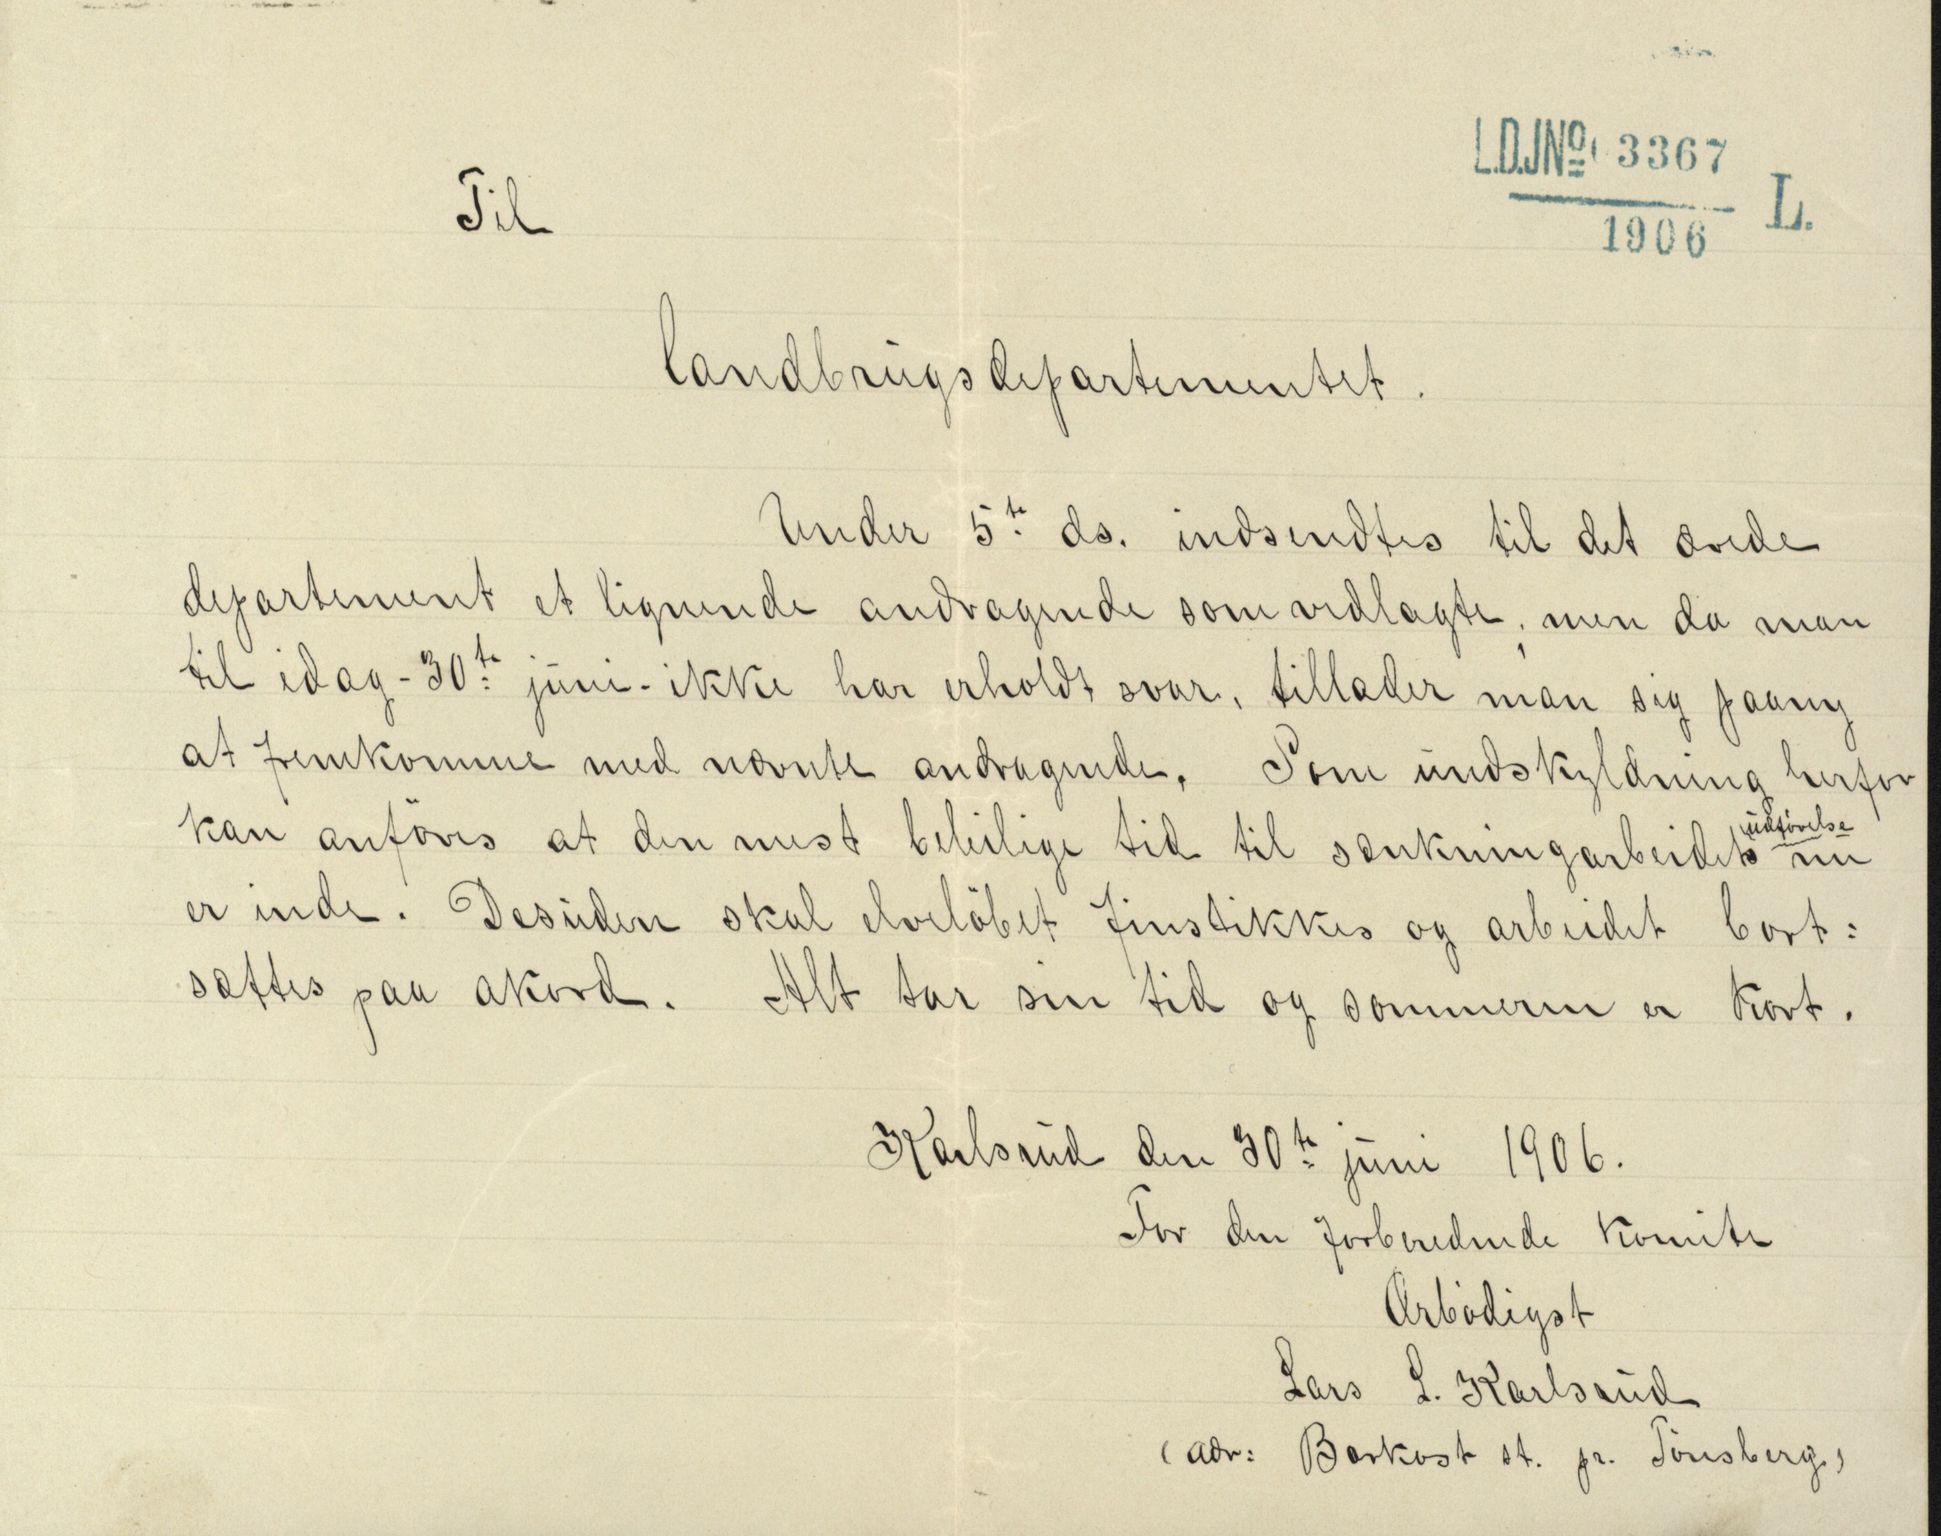 L.D.JNº 3367
1906 L.
Til
Landbrugsdepartementet.
Under 5te ds. indsendtes til det ærede
departement et lignende andragende som vedlagte, men da man
til idag - 30te juni - ikke har erholdt svar, tillader man sig paany
at fremkomme med nævnte andragende. Som undskyldning herfor
kan anföres at den mest beleilige tid til sænkningarbeidets udförelse nu
er inde. Desuden skal elvelöbet finstikkes og arbeidet bort:
sættes paa akord. Alt tar sin tid og sommeren er kort.
Karlsrud den 30te juni 1906.
For den forberedende komite
Ærbödigst
Lars L. Karlsrud
(adr: Barkost st. pr. Tönsberg)